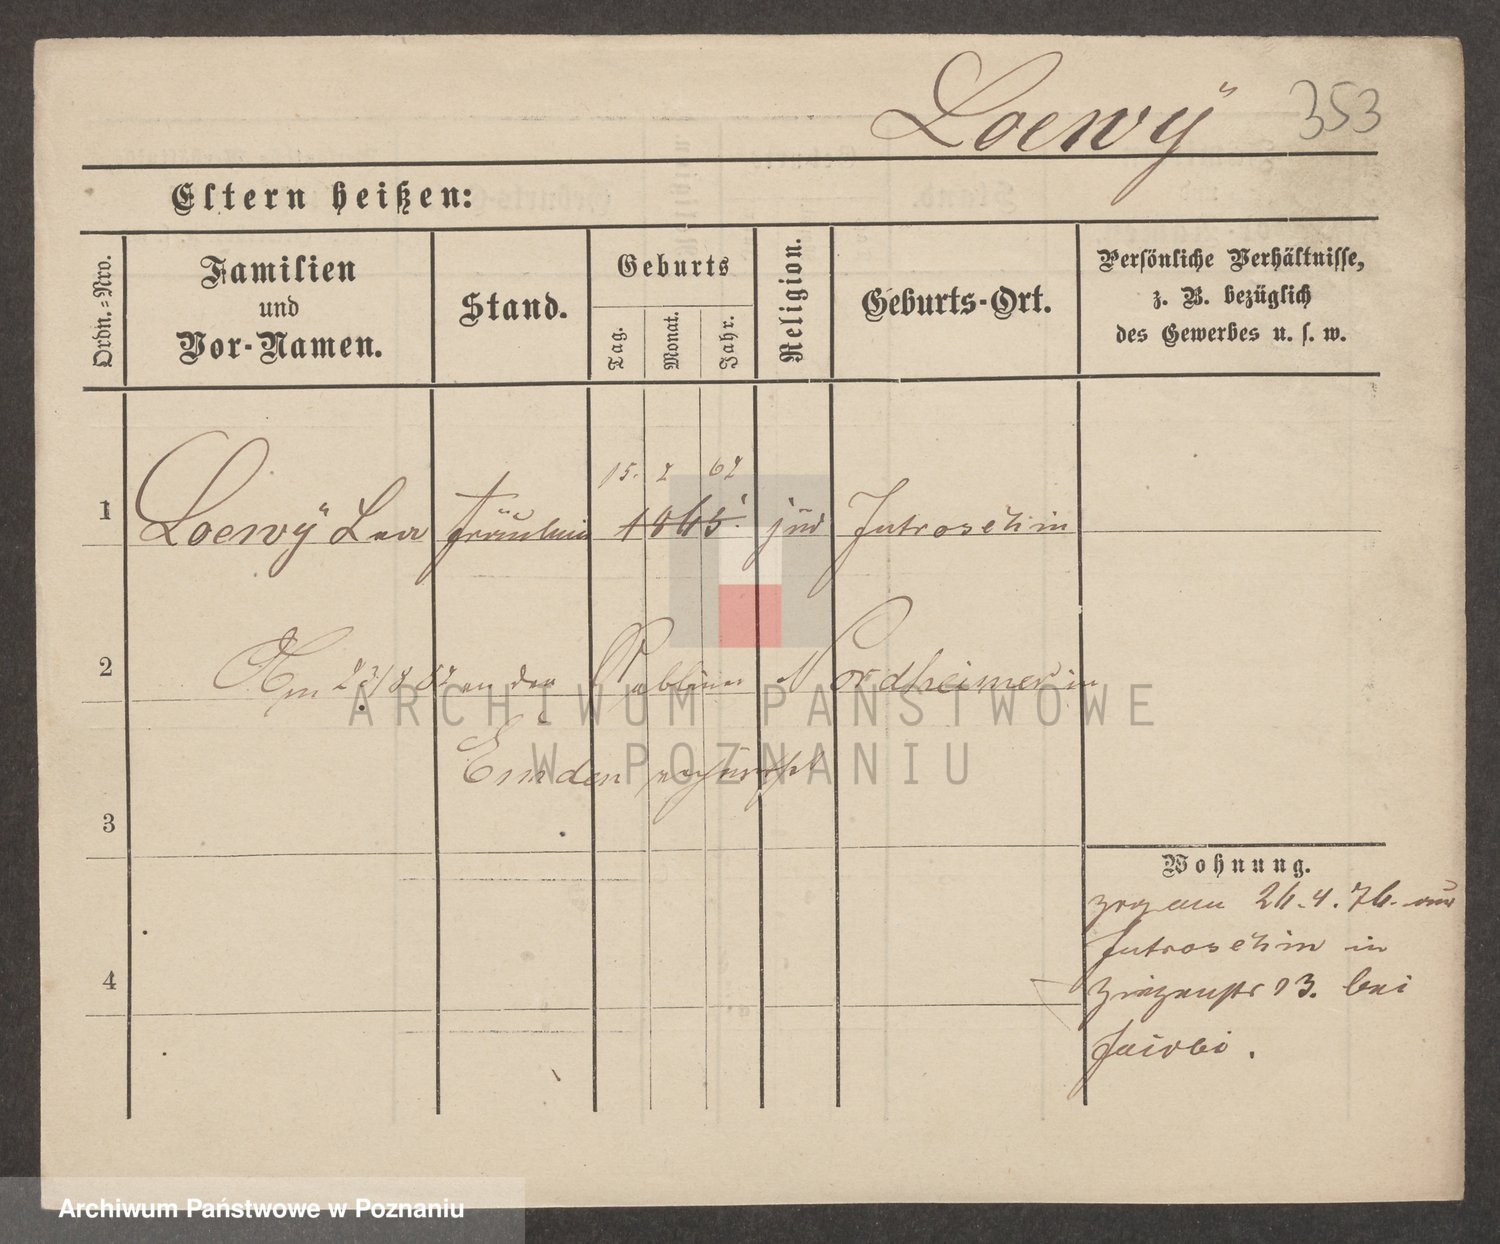 Loewÿ 353
Eltern heißen:
Ordn.=Nro.
Familien
und
Vor-Namen.
Stand.
Geburts
Tag.
Monat.
Jahr.
Religion.
Geburts-Ort.
Persönliche Verhältnisse,
z. B. bezüglich
des Gewerbes u. s. w.
15. 7 67
1 Loewÿ Lea Fräulein 1865 jüd Jutroschin
2 Am 23/8 87 an den Rabbiner Nordheimer in
ARCHIWUM PAŃSTWOWE
W POZNANIU
Emden
3
Wohnung.
zog am 26.4.76. aus
Jutroschin in
4
Ziegenstr 13. bei
Jacobi.
Archiwum Państwowe w Poznaniu